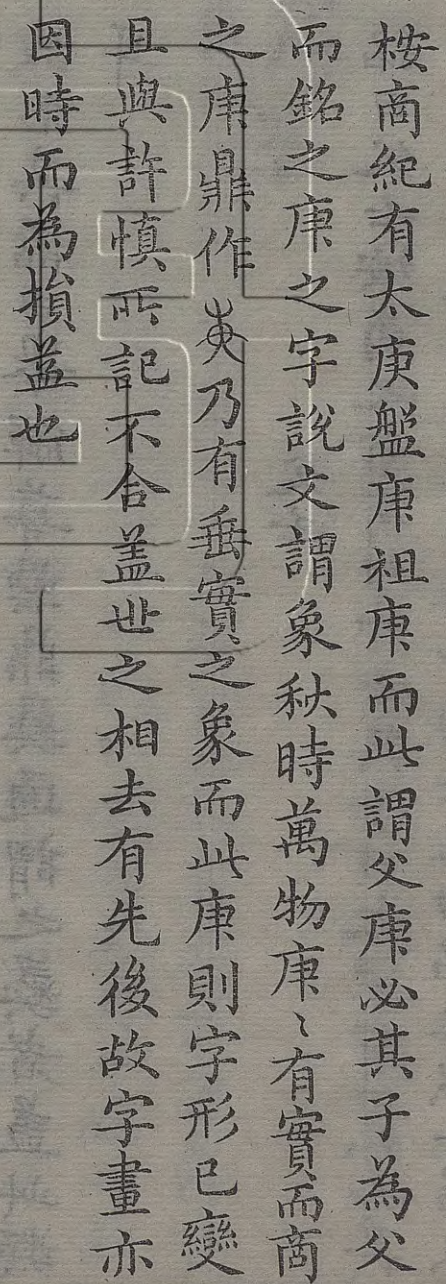 桉商紀有太庚盤庚祖庚而此謂父庚必其子為父
而銘之庚之字說文謂象秋時萬物庚〻有實而商
之庚鼎作乃有垂實之象而此庚則字形已變
且與許慎所記不合盖世之相去有先後故字畫亦
因時而為損益也